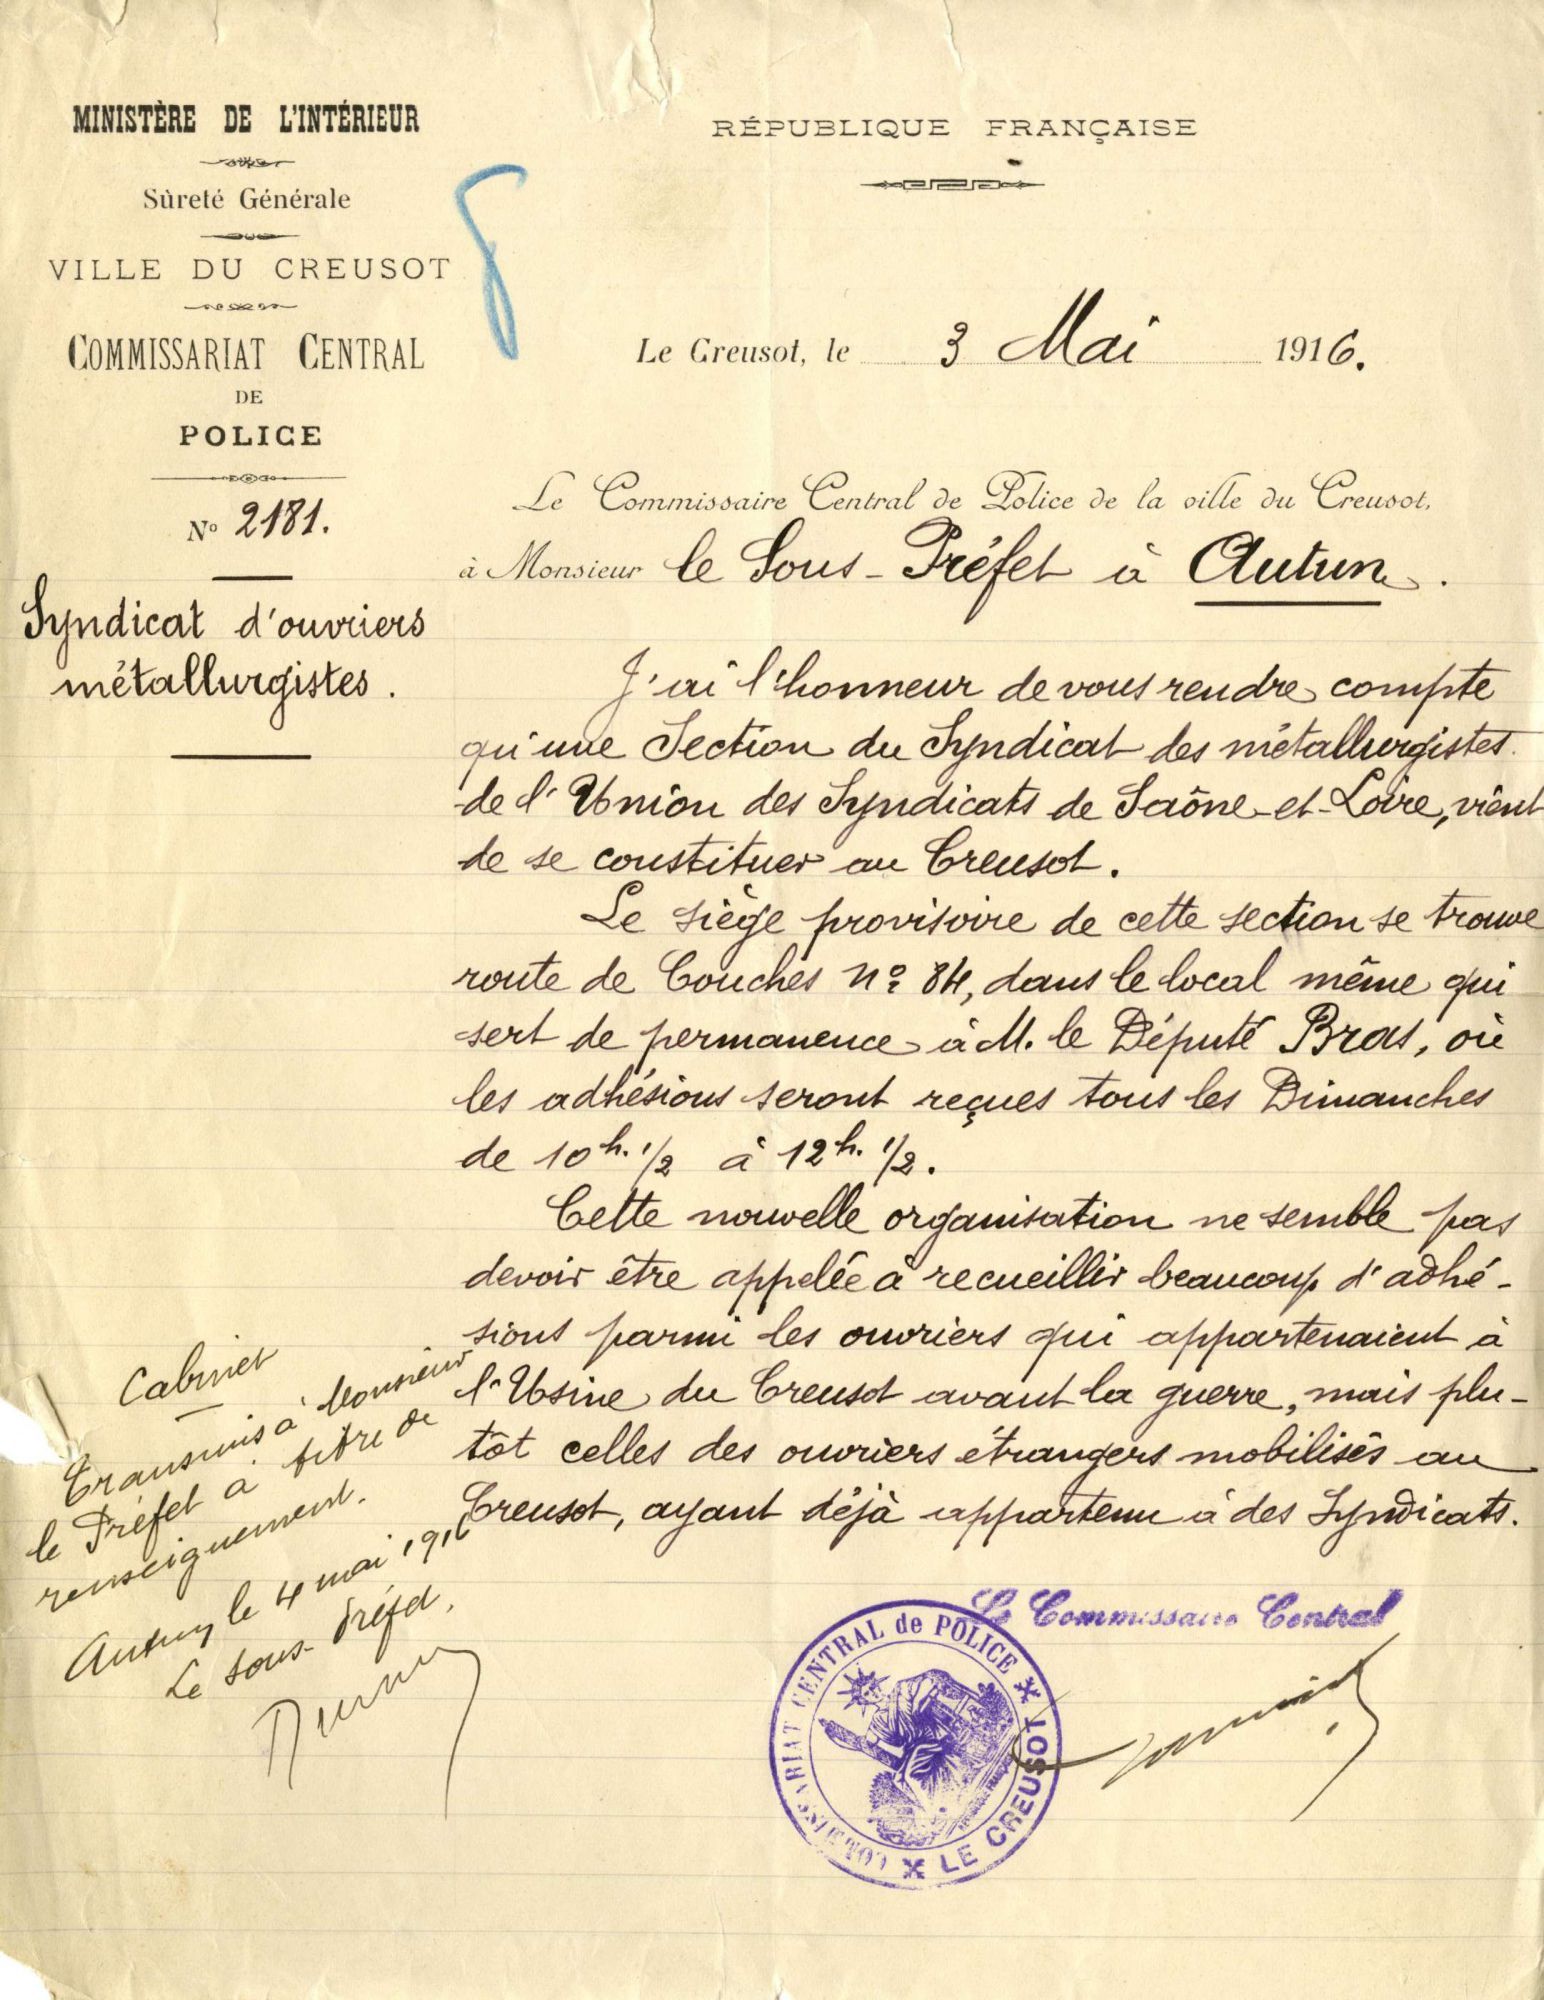 MINISTÈRE DE L'INTÉRIEUR
Sûreté Générale
VILLE DU CREUSOT
COMMISSARIAT CENTRAL
DE
POLICE
N° 2181.
Syndicat d'ouvriers
métallurgistes.
RÉPUBLIQUE FRANÇAISE
8
Le Creusot, le 3 Mai 1916.
Le Commissaire Central de Police de la ville du Creusot,
à Monsieur le Sous-Préfet à Autun.
J'ai l'honneur de vous rendre compte
qu'une Section du Syndicat des métallurgistes
de l'Union des Syndicats de Saône-et-Loire, vient
de se constituer au Creusot.
Le siège provisoire de cette section se trouve
route de Couches n° 84, dans le local même qui
sert de permanence à M. le Député Bras, où
les adhésions seront reçues tous les Dimanches
de 10 h. 1/2 à 12 h. 1/2.
Cette nouvelle organisation ne semble pas
devoir être appelée à recueillir beaucoup d'adhé-
sions parmi les ouvriers qui appartenaient à
l'Usine du Creusot avant la guerre, mais plu-
tôt celles des ouvriers étrangers mobilisés au
Creusot, ayant déjà appartenu à des Syndicats.
Le Commissaire Central
COMMISSARIAT CENTRAL de POLICE
LE CREUSOT
Cabinet
Transmis à Monsieur
le Préfet à titre de
renseignement.
Autun, le 4 mai 1916
Le Sous-Préfet,